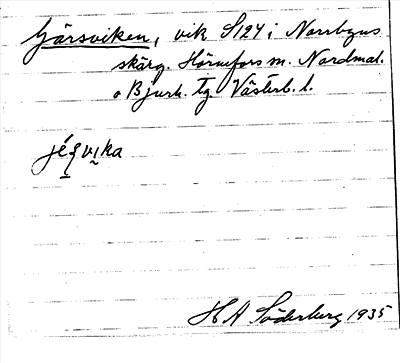 Gärsviken, vik S124 i Norrbyns
skärg. Hörnefors m. Nordmal.
o Bjurh. tg. Västerb. l.
H A Söderberg 1935